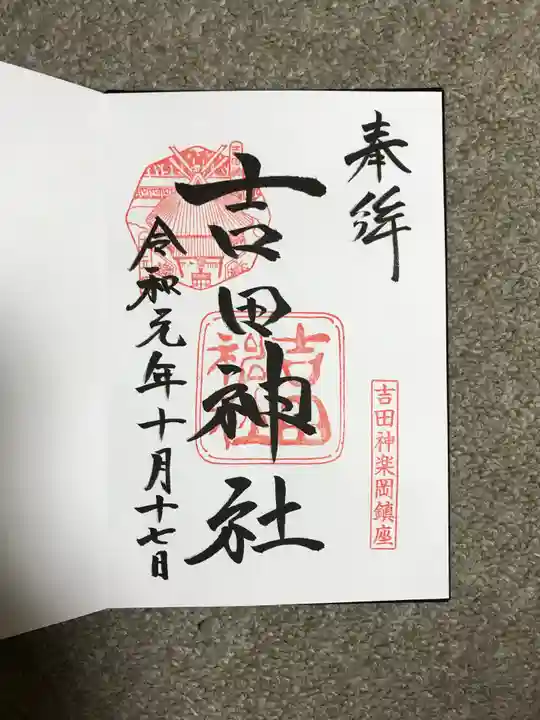 奉拝
吉田神楽岡鎮座
吉田神社
吉田神社
令和元年十月十七日